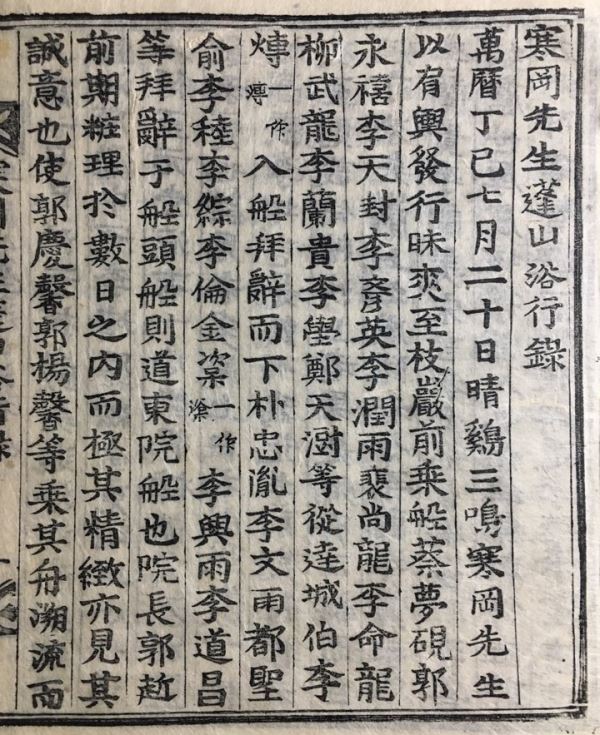 寒岡先生蓬山浴行錄
萬曆丁巳七月二十日晴鷄三鳴寒岡先生
以有輿發行昧爽至枝巖前乘船蔡夢硯郭
永禧李天封李彥英李潤雨裵尚龍李命龍
柳武龍李蘭貴李學鄭天澍等從逹城伯李
煿一作㙛入船拜辭而下朴忠胤李文雨都聖
俞李𥡦李綜李倫金㴉一作滁李興雨李道昌
等拜辭于船頭船則道東院船也院長郭赾
前期粧理於數日之內而極其精緻亦見其
誠意也使郭慶馨郭楊馨等乘其舟溯流而